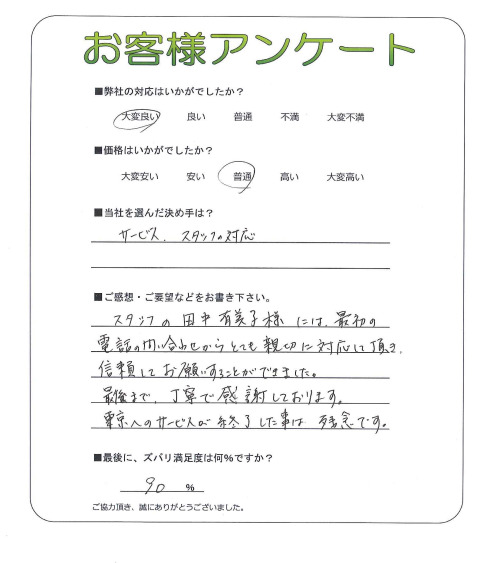 お客様アンケート
■弊社の対応はいかがでしたか?
大変良い 良い 普通 不満 大変不満
■価格はいかがでしたか?
大変安い 安い 普通 高い 大変高い
■当社を選んだ決め手は?
サービス、スタッフの対応
■ご感想・ご要望などをお書き下さい。
スタッフの田中有美子様には、最初の
電話の問い合わせからとても親切に対応して頂き、
信頼してお願いすることができました。
最後まで、丁寧で感謝しております。
東京へのサービスが終了した事は残念です。
■最後に、ズバリ満足度は何%ですか?
90 %
ご協力頂き、誠にありがとうございました。